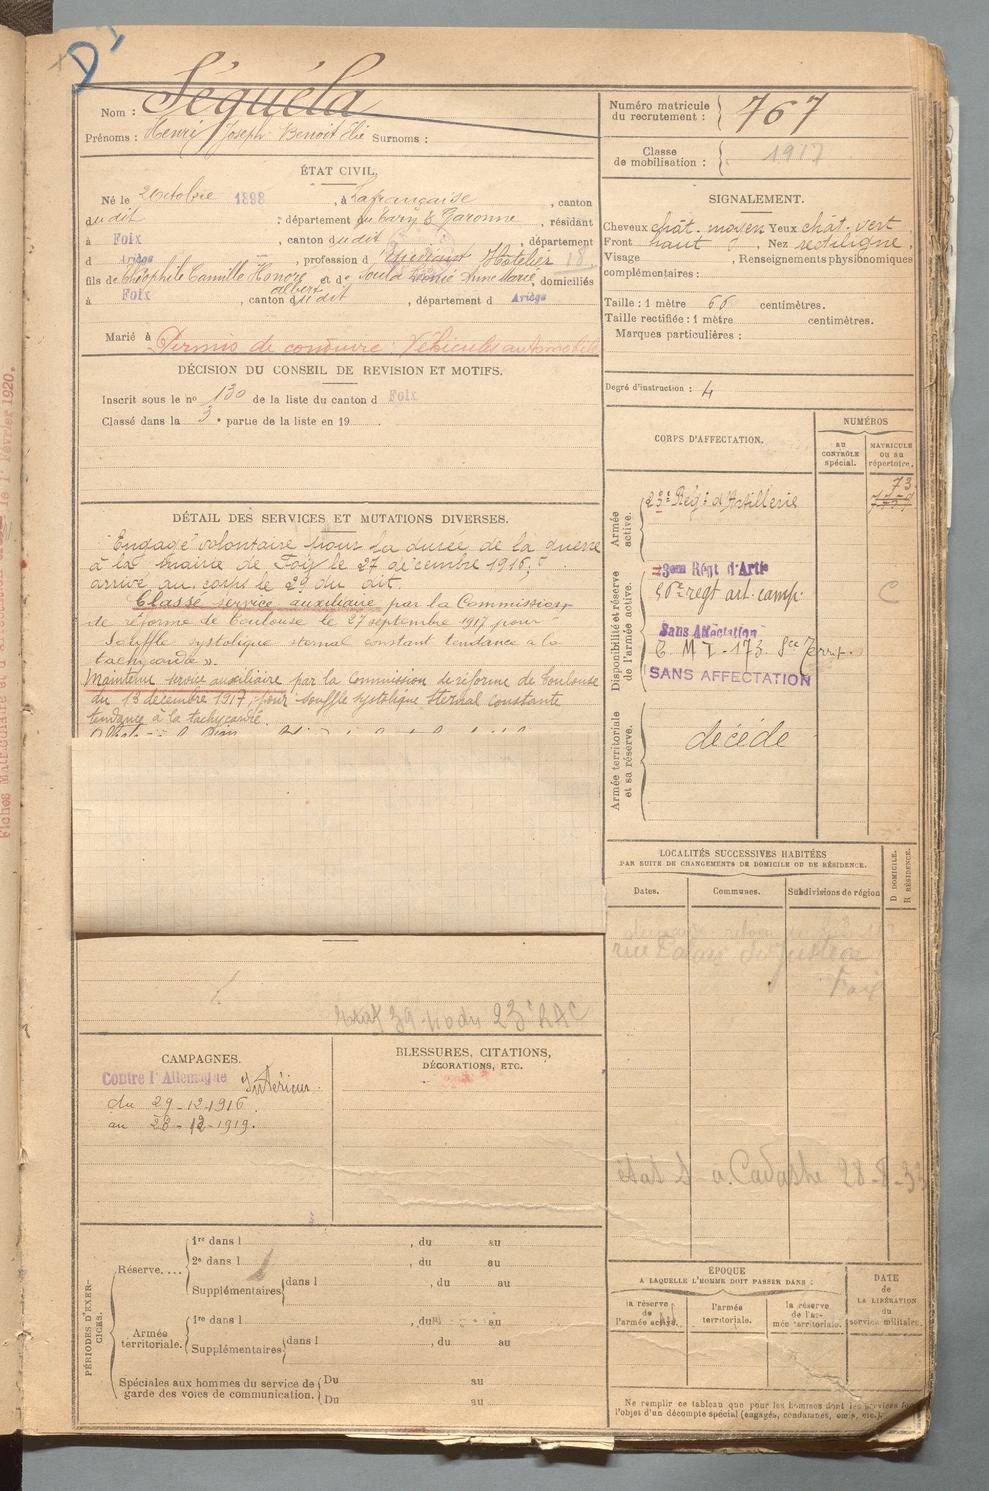 D
Nom : Séquéla
Prénoms : Henri Joseph Benoit Elie Surnoms :
Numéro matricule du recrutement : 767
Classe de mobilisation : 1917
ÉTAT CIVIL.
Né le 2 Octobre 1898, à Lafrançaise, canton
dudit, département du Tarn & Garonne, résidant
à Foix, canton dudit, département
d Ariège, profession d Hôtelier 18
fils de Théophile Camille Honoré et de Marie, domiciliés
albert
à Foix, canton dudit, département d Ariège
Marié à
Permis de conduire : Véhicules automobiles
DÉCISION DU CONSEIL DE REVISION ET MOTIFS.
Inscrit sous le nº 130 de la liste du canton d Foix
Classé dans la 3e partie de la liste en 19
SIGNALEMENT.
Cheveux chât. moyen Yeux chât. vert
Front haut, Nez rectiligne.
Visage, Renseignements physionomiques
complémentaires :
Taille : 1 mètre 66 centimètres.
Taille rectifiée : 1 mètre centimètres.
Marques particulières :
Degré d'instruction : 4
DÉTAIL DES SERVICES ET MUTATIONS DIVERSES.
Engagé volontaire pour la durée de la guerre
à la mairie de Foix le 27 décembre 1916,
arrivé au corps le 29 du dit.
Classé service auxiliaire par la Commission
de réforme de Toulouse le 27 septembre 1917 pour
Souffle systolique sternal constant tendance à la
tachycardie ».
Maintenu service auxiliaire par la Commission de réforme de Toulouse
du 13 décembre 1917, pour souffle systolique sternal constante
tendance à la tachycardie.
CORPS D'AFFECTATION.
NUMÉROS
AU CONTRÔLE spécial.
MATRICULE ou au répertoire.
Armée active.
23e Régt d'Artillerie
73
Disponibilité et réserve de l'armée active.
23em Régt d'Artie
56e régt art. camp.
C
Sans Affectation
C. M I. 173
SANS AFFECTATION
Armée territoriale et sa réserve.
décédé
LOCALITÉS SUCCESSIVES HABITÉES
PAR SUITE DE CHANGEMENTS DE DOMICILE OU DE RÉSIDENCE.
Dates.
Communes.
Subdivisions de région
D DOMICILE.
R RÉSIDENCE.
Foix
23e RAC
CAMPAGNES.
Contre l'Allemagne Intérieur.
du 29-12-1916
au 28-12-1919.
BLESSURES, CITATIONS,
DÉCORATIONS, ETC.
à Cadastre 28-8-33
PÉRIODES D'EXERCICES.
Réserve....
1re dans l , du au
2e dans l , du au
Supplémentaires dans l , du au
Armée territoriale.
1re dans l , du au
Supplémentaires dans l , du au
Spéciales aux hommes du service de garde des voies de communication.
Du au
Du au
ÉPOQUE
A LAQUELLE L'HOMME DOIT PASSER DANS :
la réserve de l'armée active.
l'armée territoriale.
la réserve de l'armée territoriale.
DATE de LA LIBÉRATION du service militaire.
Ne remplir ce tableau que pour les hommes dont les services font
l'objet d'un décompte spécial (engagés, condamnés, omis, etc.).